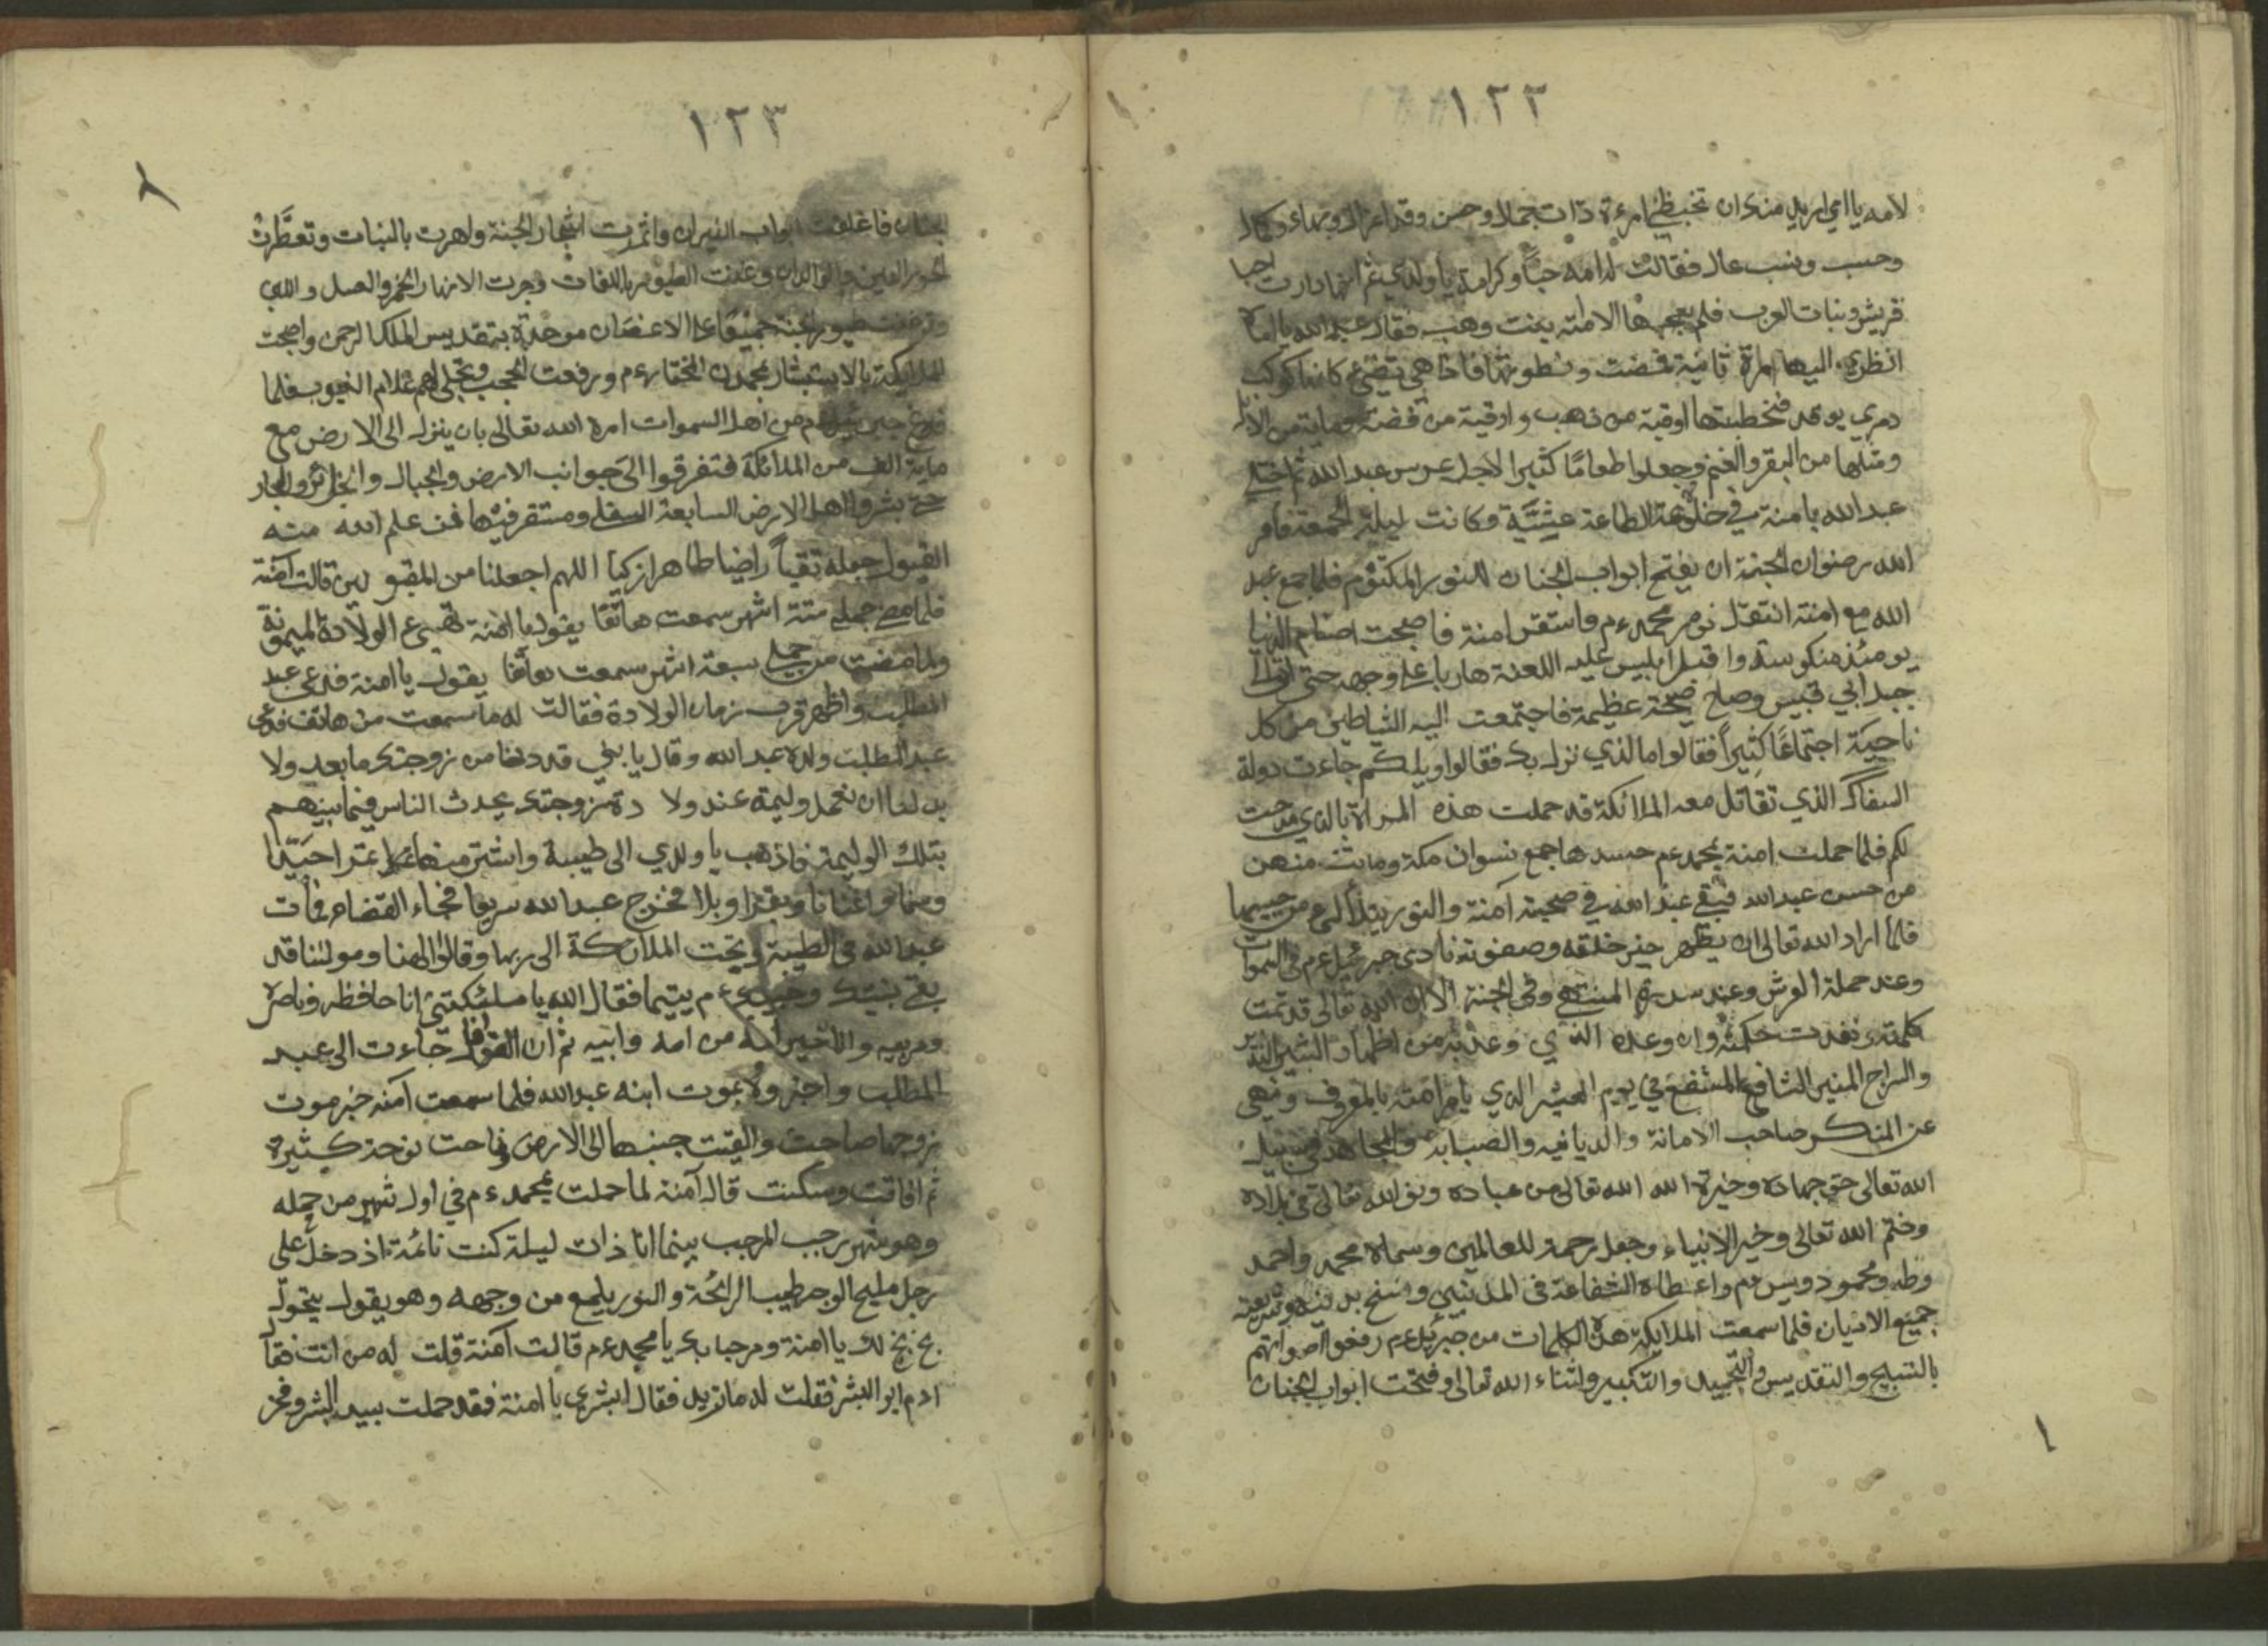 ١٢٢
لامه يا امي اريد منك ان تخطبي امرءة ذات جمال وحسن وقد اعزال وبهاء وكمال
وحسب ونسب عال فقالت له امه حبا وكرامة يا ولدي ثم انها دارت احيا
قريش وبنات العرب فلم يعجبها الا امنة بنت وهب فقال عبد الله يا اماه
انظري اليها مرة ثانية فمضت ونظرتها فاذا هي تضيء كانها كوكب
دري يوقد فخطبتها اوقية من ذهب واوقية من فضة وماية من الابل
ومثلها من البقر والغنم وجعلوا طعاما كثيرا لاجل عرس عبد الله ثم اختلى
عبد الله بامنة في خلوة الطاعة عشية وكانت ليلة الجمعة فامر
الله رضوان الجنة ان يفتح ابواب الجنان للنور المكتوم فلما جمع عبد
الله مع امنة انتقل نور محمد عم فاستقر امنة فاصبحت اصنام الدنيا
يومئذ منكوسة واقبل ابليس عليه اللعنة هاربا على وجهه حتى اتى الى
جبل ابي قبيس وصاح صيحة عظيمة فاجتمعت اليه الشياطين من كل
ناحية اجتماعا كثيرا فقالوا ما الذي نزل بك فقالوا ويلكم جاءت دولة
السفاك الذي تقاتل معه الملائكة قد حملت هذه المراة بالذي
لكم فلما حملت امنة بمحمد عم حسدها جمع نسوان مكة وماتت منهن
من حسن عبد الله فبقي عبد الله في صحبة آمنة والنور يتلألئ من جبينها
فلما اراد الله تعالى ان يظهر خير خلقه وصفوته نادى جبرئيل عم في السموات
وعند حملة العرش وعند سدرة المنتهى وفي الجنة الا ان الله تعالى قد تمت
كلمته ونفدت حكمته وان وعده الذي وعد به من اظهار البشير النذير
والسراج المنير الشافع المشفع في يوم المحشر الذي يامر امته بالمعروف وينهى
عن المنكر صاحب الامانة والديانيه والصيانة والمجاهد في سبيل
الله تعالى حق جهاده وخيرة الله الله تعالى من عباده ونور الله تعالى في بلاده
وختم الله تعالى وخير الانبياء وجعل رحمة للعالمين وسماه محمد واحمد
وطه ومحمود ويس عم واعطاه الشفاعة في المذنبين ونسخ بدينه وشريعته
جميع الاديان فلما سمعت الملايكة هذه الكلمات من جبرئيل عم رفعوا اصواتهم
بالتسبيح والتقديس والتحميد والتكبير والثناء الله تعالى وفتحت ابواب الجنان
١
١٢٣
٢
الجنان فاغلقت ابواب النيران واثمرت اشجار الجنة واهرت بالنبات وتعطرت
الحور العين والولدان وغنت الطيور باللغات وجرت الانهار الخمر والعسل واللبن
طيور الجنة جميعا على الاغصان موحدة بتقديس الملك الرحمن واصبحت
الملايكة بالاستبشار بمحمد المختار عم ورفعت الحجب وتجلى لهم علام الغيوب فلما
فرغ جبرئيل عم من اهل السموات امره الله تعالى بان ينزل الى الارض مع
ماية الف من الملائكة فتفرقوا الى جوانب الارض والجبال والجزائر والبحار
حتى بشروا اهل الارض السابعة السفلى ومستقر فيها فمن علم الله منه
القبول جعله تقيا راضيا طاهرا زكيا اللهم اجعلنا من المقبولين قالت آمنة
فلما مضى حملي ستة اشهر سمعت هاتفا يقول يا امنة تضع الولادة الميمونة
ولما مضت من حملي سبعة اشهر سمعت هاتفا يقول يا امنة فدعى عبد
المطلب واظهر قرب زمان الولادة فقالت له ما سمعت من هاتف فدعى
عبد المطلب ولده عبد الله وقال يا بني قد دنا من زوجتك ما بعد ولا
بد لنا ان نعمل وليمة عند ولا دة زوجتك يحدث الناس فيما بينهم
بتلك الوليمة فاذهب يا ولدي الى طيبة واشتر منها تمرا جيدا
وسمنا واغناما وبقرا وبلا فخرج عبد الله سريعا فجاء القضاء فمات
عبد الله في الطيبة وضجت الملائكة الى ربها وقالوا الهنا ومولنا قد
بقى نبيك وحبيبك عم يتيما فقال الله يا ملئكتي انا حافظه وناصره
ومربيه والا خير له من امه وابيه ثم ان القوافل جاءت الى عبد
المطلب واخبروه بموت ابنه عبد الله فلما سمعت آمنه خبر موت
زوجها صاحت والقيت جنبها الى الارض وناحت نوحة كثيرة
ثم افاقت وسكنت قال آمنة لما حملت بمحمد عم في اول شهر من حمله
وهو شهر رجب المرجب بينما انا ذات ليلة كنت نائمة اذ دخل على
رجل مليح الوجه طيب الرائحة والنور يلمع من وجهه وهو يقول
بخ بخ لك يا امنة ومرحبا بك يا محمد عم قالت آمنة قلت له من انت فقال
ادم ابو البشر فقلت له ما تريد فقال ابشري يا امنة فقد حملت بسيد البشر وفخر